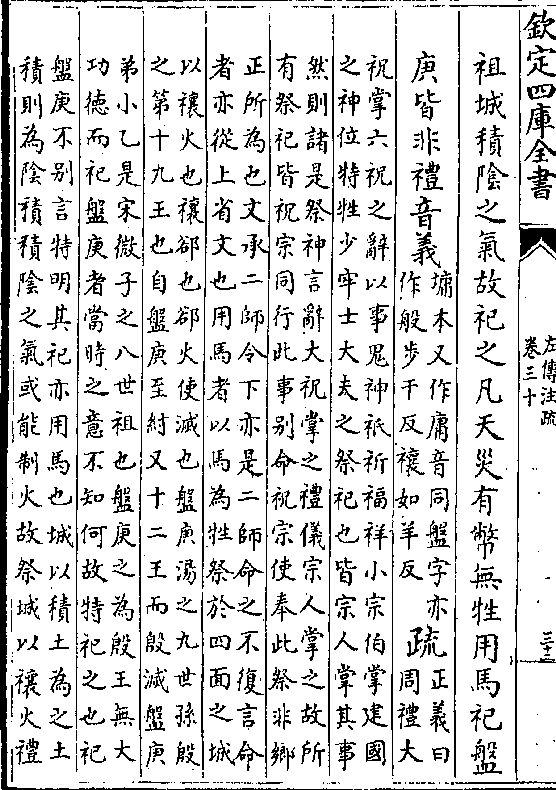 欽定四庫全書
左傳注疏
卷三十
三十二
祖城積陰之氣故祀之凡天災有幣無牲用馬祀盤
庚皆非禮音義
墉本又作庸音同盤字亦
作般步干反禳如羊反
疏
正義曰
周禮大
祝掌六祝之辭以事鬼神祇祈福祥小宗伯掌建國
之神位特牲少牢士大夫之祭祀也皆宗人掌其事
然則諸是祭神言辭大祝掌之禮儀宗人掌之故所
有祭祀皆祝宗同行此事别命祝宗使奉此祭非鄉
正所為也文承二師令下亦是二師命之不復言命
者亦從上省文也用馬者以馬為牲祭於四面之城
以禳火也禳郤也郤火使滅也盤庚湯之九世孫殷
之第十九王也自盤庚至紂又十二王而殷滅盤庚
弟小乙是宋微子之八世祖也盤庚之為殷王無大
功德而祀盤庚者當時之意不知何故特祀之也祀
盤庚不别言特明其祀亦用馬也城以積土為之土
積則為陰積積陰之氣或能制火故祭城以禳火禮